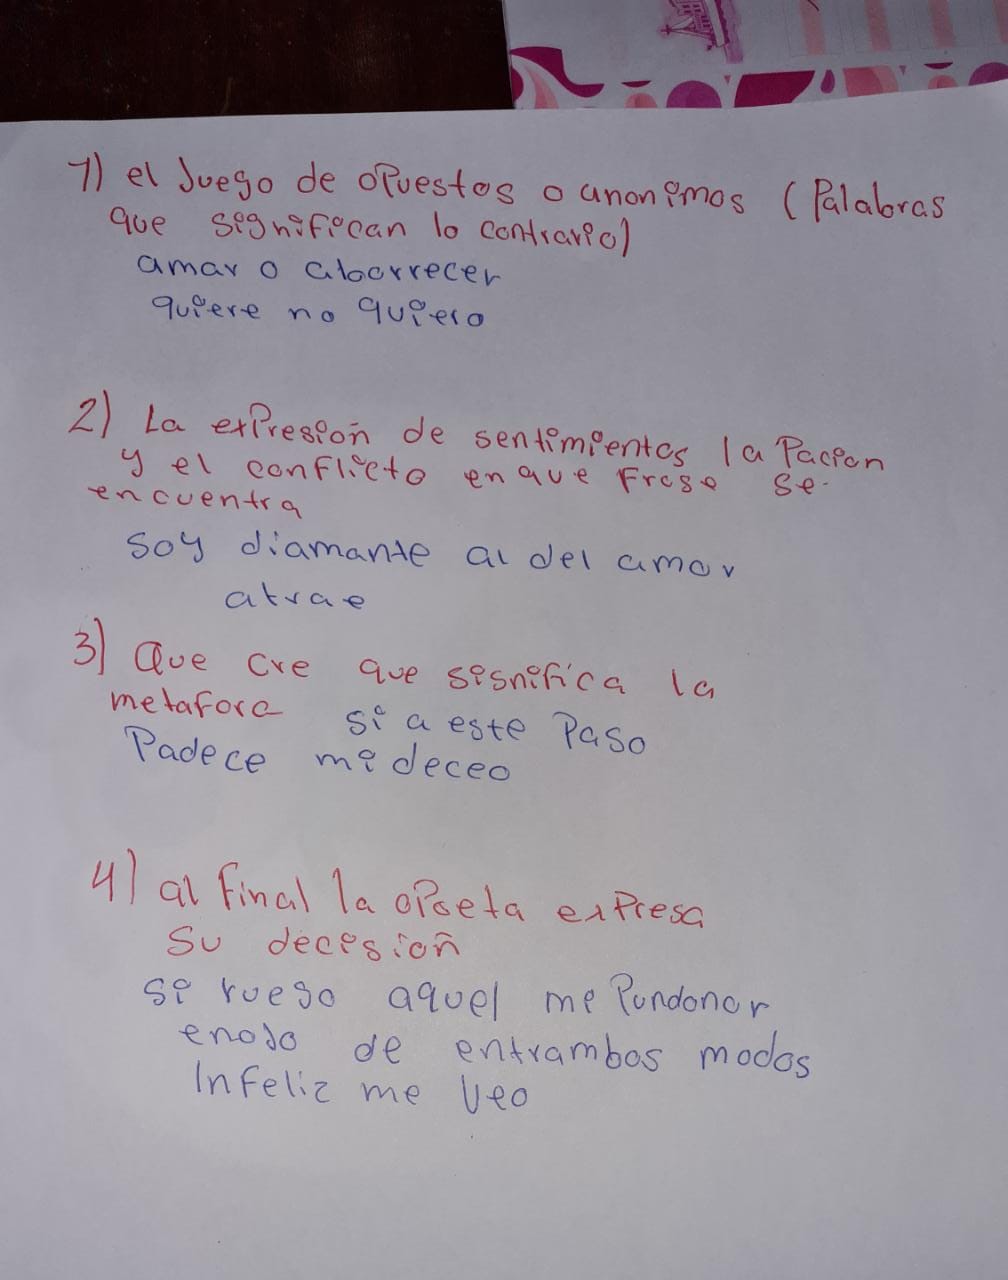 1) el Juego de opuestos o anonimos (Palabras
que significan lo contrario)
amar o aborrecer
quiere no quiero
2) La expresioñ de sentimientos la Pacion
y el conflicto en que Frase se
encuentra
Soy diamante al del amor
atrae
3) Que cre que sisnifica la
metafora si a este Paso
Padece mi deceo
4) al final la oPoeta expresa
su decisioñ
si ruego aquel mi Pundonor
enojo de entrambos modos
Infeliz me Veo